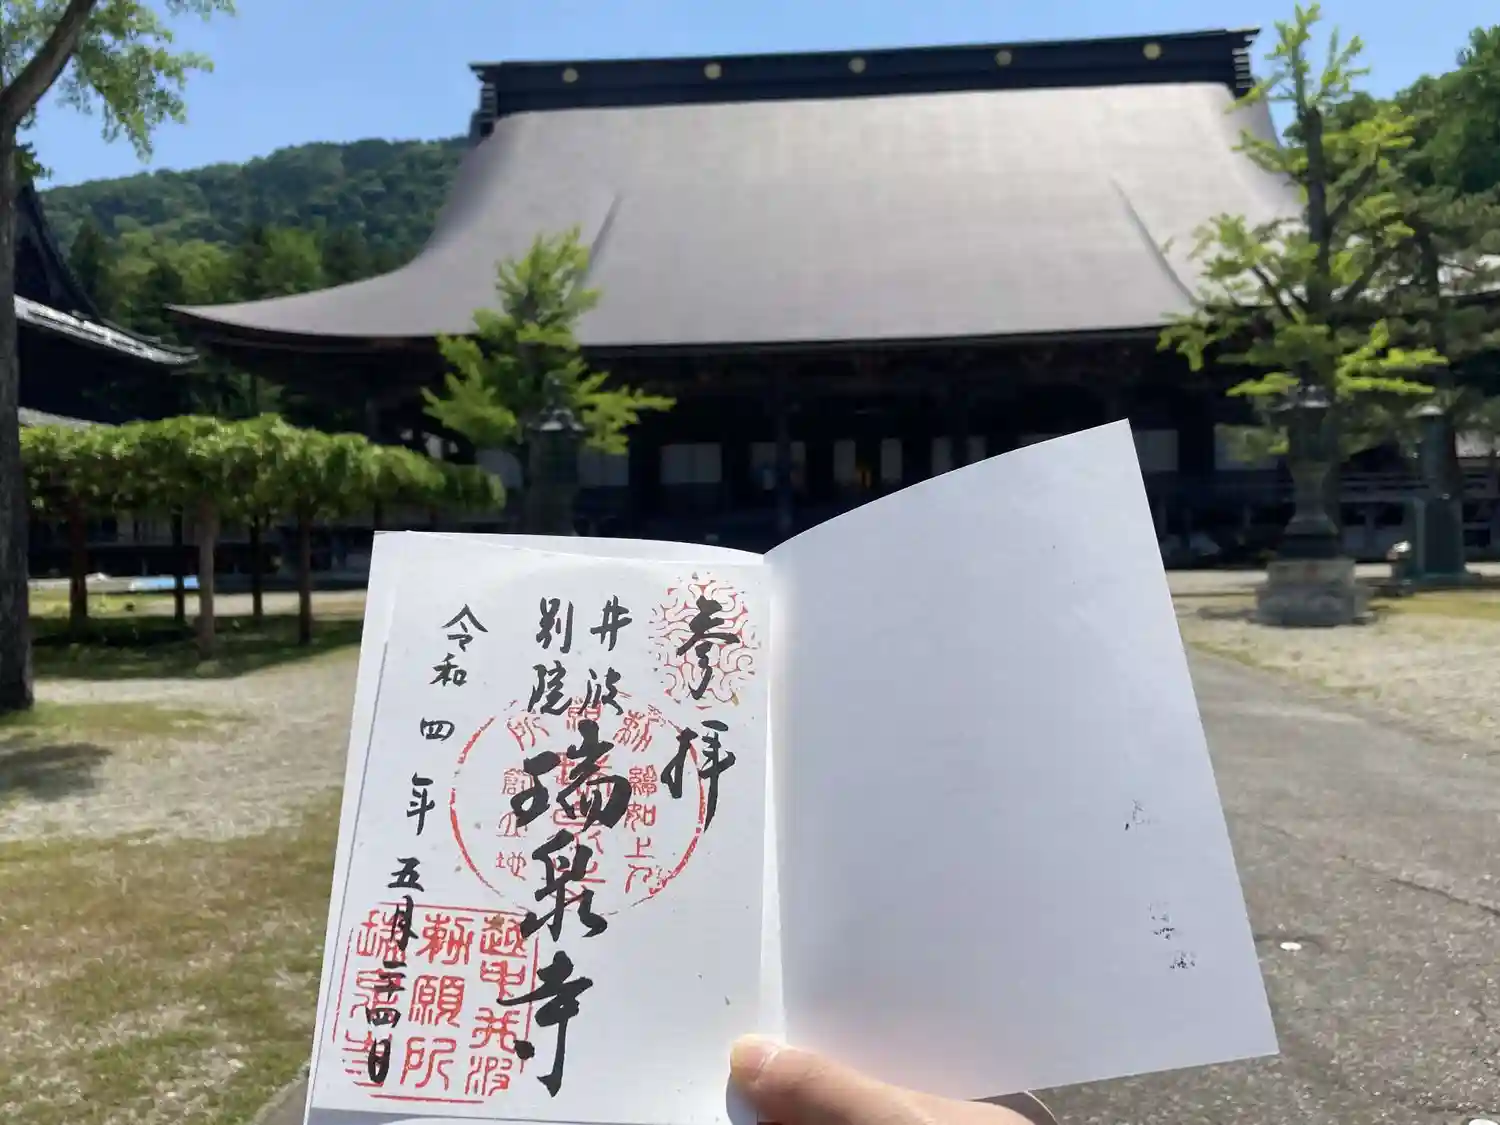 参拝
井波
別院
瑞泉寺
令和四年五月二十四日
越中井波
勅願所
瑞泉寺